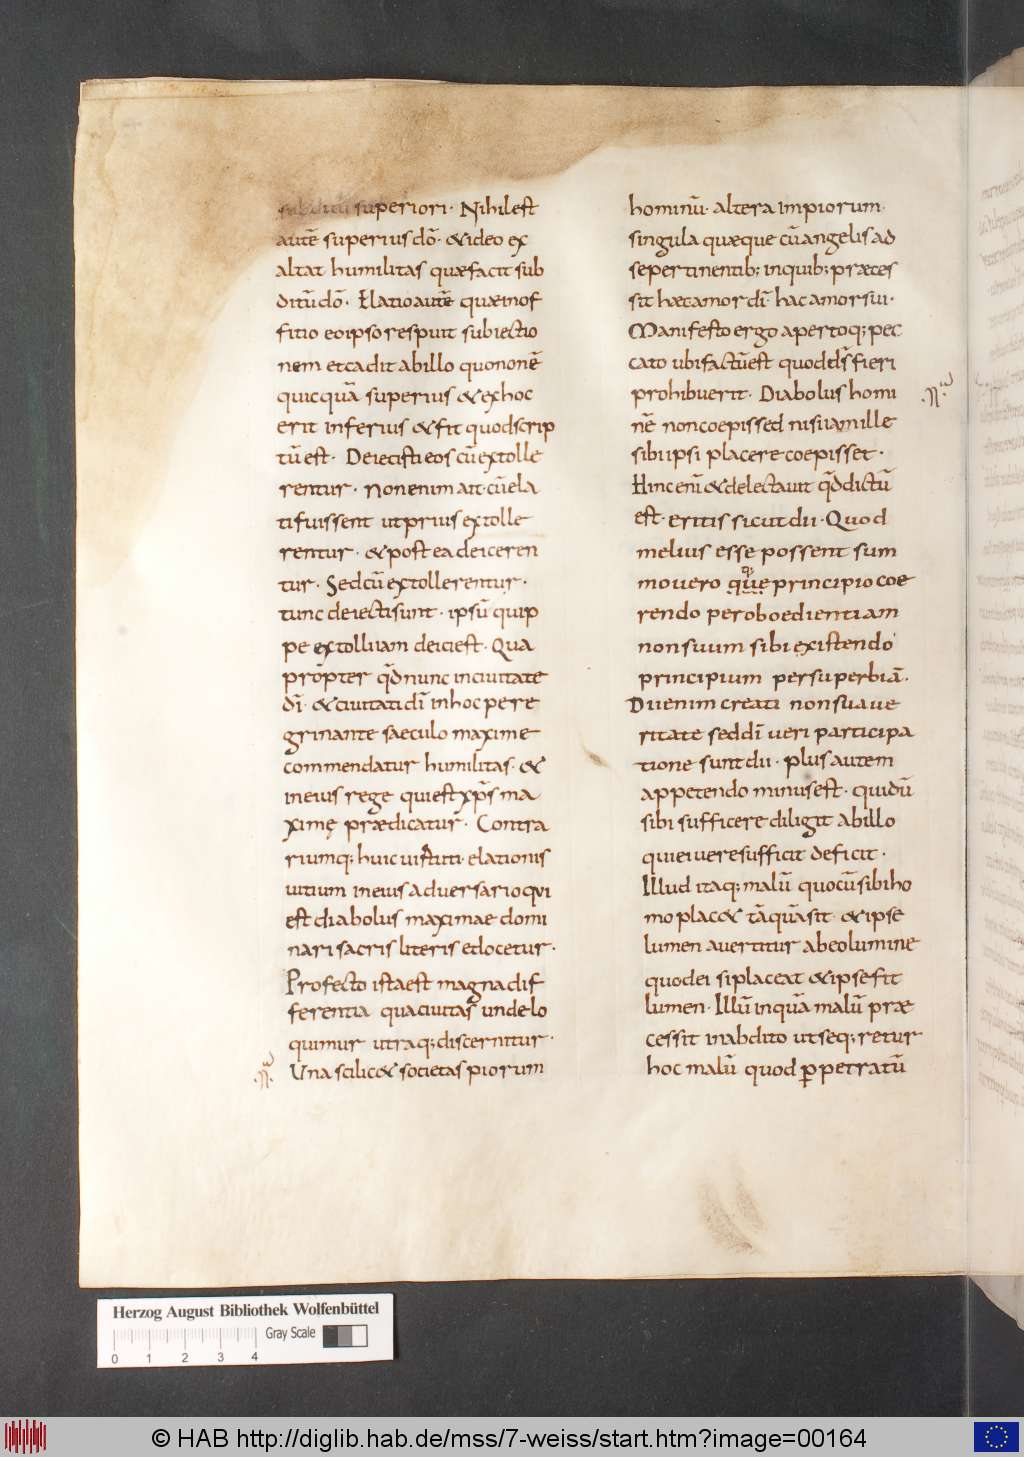 subditū superiori· Nihilest
autē superius dō· &ideo ex
altat humilitas quæfacit sub
ditū dō· Elatioautē quæinof
fitio eoipsorespuit subiectio
nem etcadit abillo quononē
quicquā superius &exhoc
erit inferius &fit quodscrip
tū est· Deiecisti eos cū extolle
rentur· nonenim ait· cū ela
ti fuissent ut prius extolle
rentur· &post ea deiceren
tur· Sedcū extollerentur·
tunc deiectisunt· ipsū quip
pe extolli iam deiciest· Qua
propter qd̄ nunc inciuitate
dī· &ciuitati dī inhoc pere
grinante saeculo maxime
commendatur humilitas· &
ineius rege qui est xp̄s ma
ximę prædicatur· Contra
riumq; huic uirtuti· elationis
uitium ineius aduersario qui
est diabolus maximae domi
nari sacris literis edocetur·
Profecto istaest magna dif
ferentia quaciuitas undelo
quimur utraq; discernitur·
Una scilic& societas piorum
hominū· altera impiorum·
singula quæque cū angelis ad
sepertinentib; inquib; præces
sit hæcamor dī· hac amor sui·
Manifesto ergo apertoq; pec
cato ubi factū est quod dš fieri
prohibuerit· Diabolus homi
nē non coepissed nisi iamille
sibi ipsi placere coepisset·
Hinc enī &delectauit qd̄ dictū
est· eritis sicut dii· Quod
melius esse possent sum
mo uero que principio coe
rendo per oboedientiam
non suum sibi existendo
principium per superbiā·
Dii enim creati non sua ue
ritate sed dī ueri participa
tione sunt dii· plus autem
appetendo minus est· qui dū
sibi sufficere diligit abillo
qui ei uere sufficit deficit·
Illud itaq; malū quo cū sibi ho
mo plac& tāquā sit· &ipse
lumen auertitur abeo lumine
quod ei si placeat &ipse fit
lumen· Illū inquā malū præ
cessit inabdito ut seq;retur
hoc malū quod ꝑpetratū
Herzog August Bibliothek Wolfenbüttel
Gray Scale
0 1 2 3 4
© HAB http://diglib.hab.de/mss/7-weiss/start.htm?image=00164